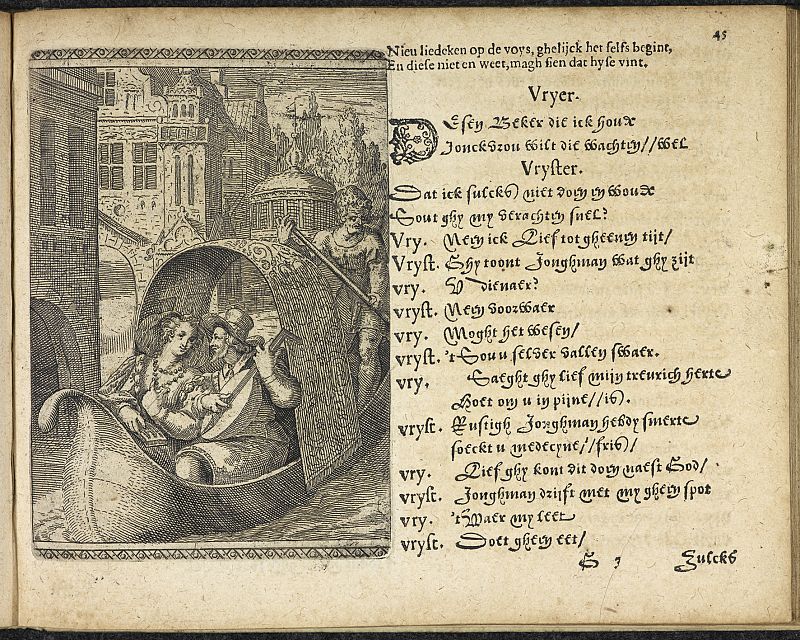 45
Nieu liedeken op de voys, ghelijck het selfs begint,
En diese niet en weet, magh sien dat hyse vint.
Vryer.
DEsen Beker die ick houde
Jonckvrou wilt die wachten//wel
Vryster.
Dat ick sulcks niet doen en woude
Sout ghy my verachten snel?
Vry. Neen ick Lief tot gheenen tijt/
Vryst. Ghy toont Jonghman wat ghy zijt
vry. V dienaer?
vryst. Neen voorwaer
vry. Moght het wesen/
vryst. 't Sou u selver vallen swaer.
vry, Saeght ghy lief mijn treurich herte
Hoet om u in pijne//is).
vryst. Rustigh Jonghman hebdy smerte
soeckt u medecyne//fris)/
vry. Lief ghy kont dit doen naest God/
vryst. Jonghman drijft met my gheen spot
vry. 't Waer my leet
vryst. Doet gheen eet/
G 3 Zulcks